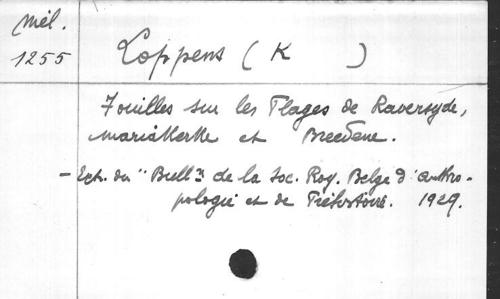 Mél.
1255
Loppens (K )
Fouilles sur les Plages de Raversyde,
Mariakerke et Breedene.
- Ext. du "Bull" de la Soc. Roy. Belge d'anthro-
pologie et de Préhistoire. 1929.